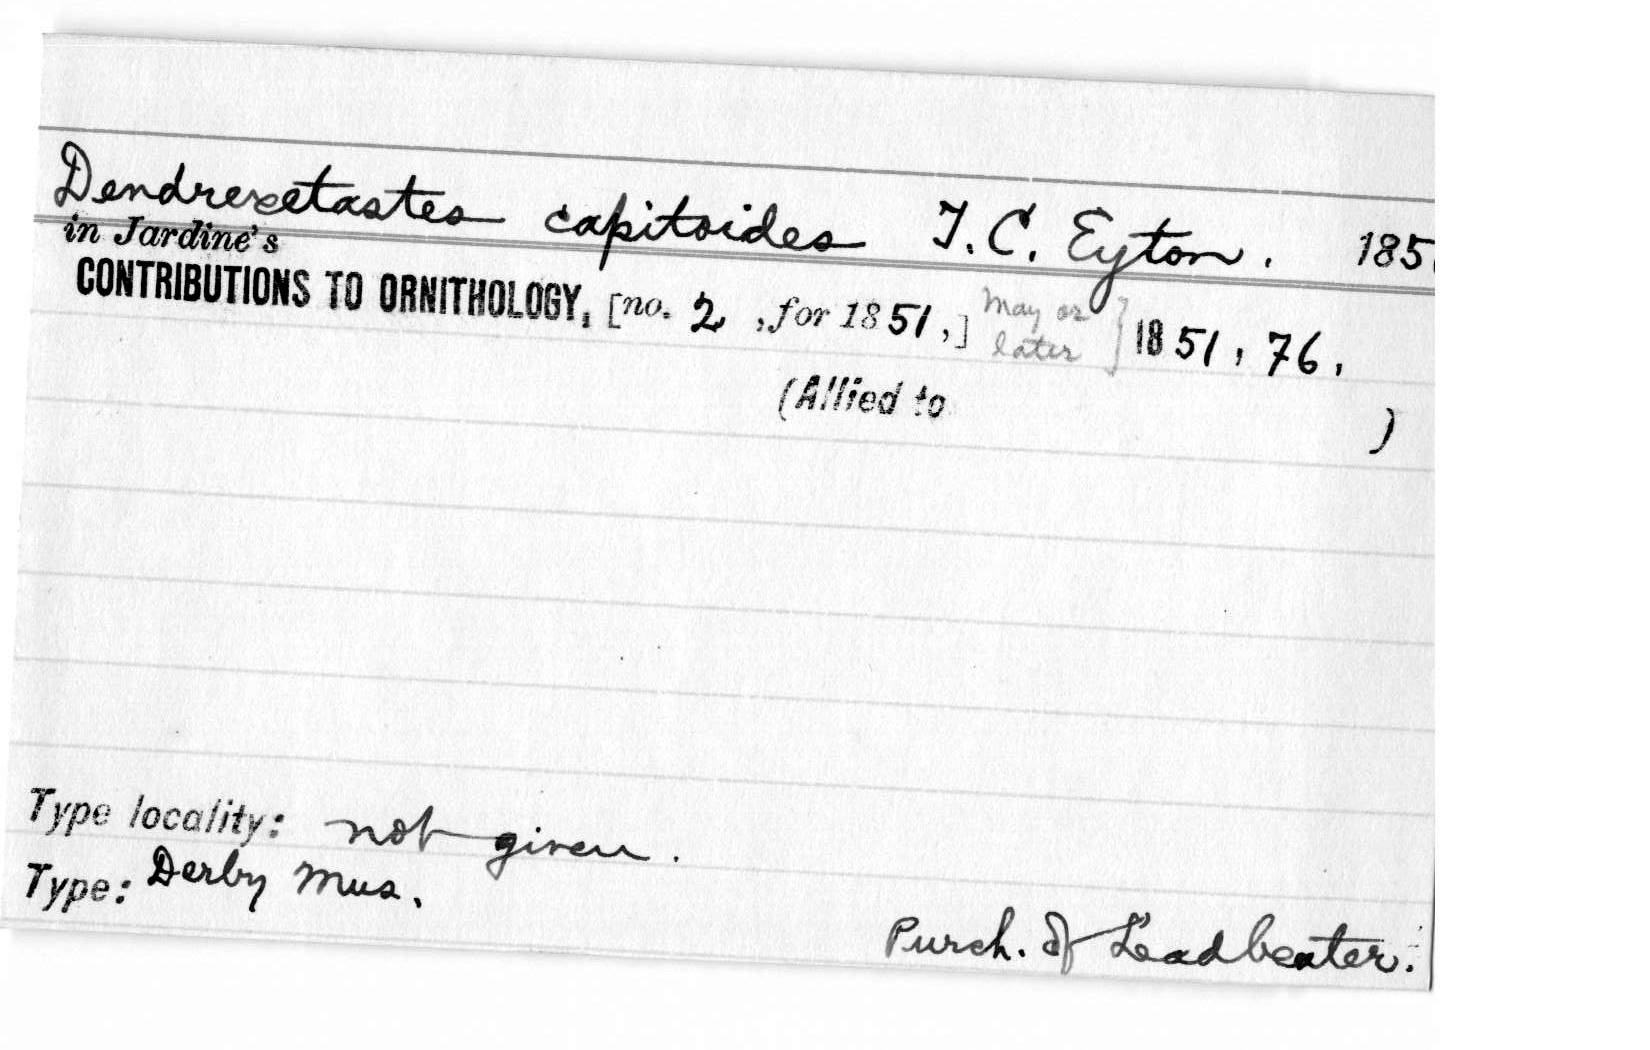 Dendrexetastes capitoides T. C. Eyton. 185
in Jardine's
CONTRIBUTIONS TO ORNITHOLOGY, [no. 2, for 1851,] May or later } 1851, 76.
(Allied to )
Type locality: not given.
Type: Derby Mus.
Purch. of Leadbeater.